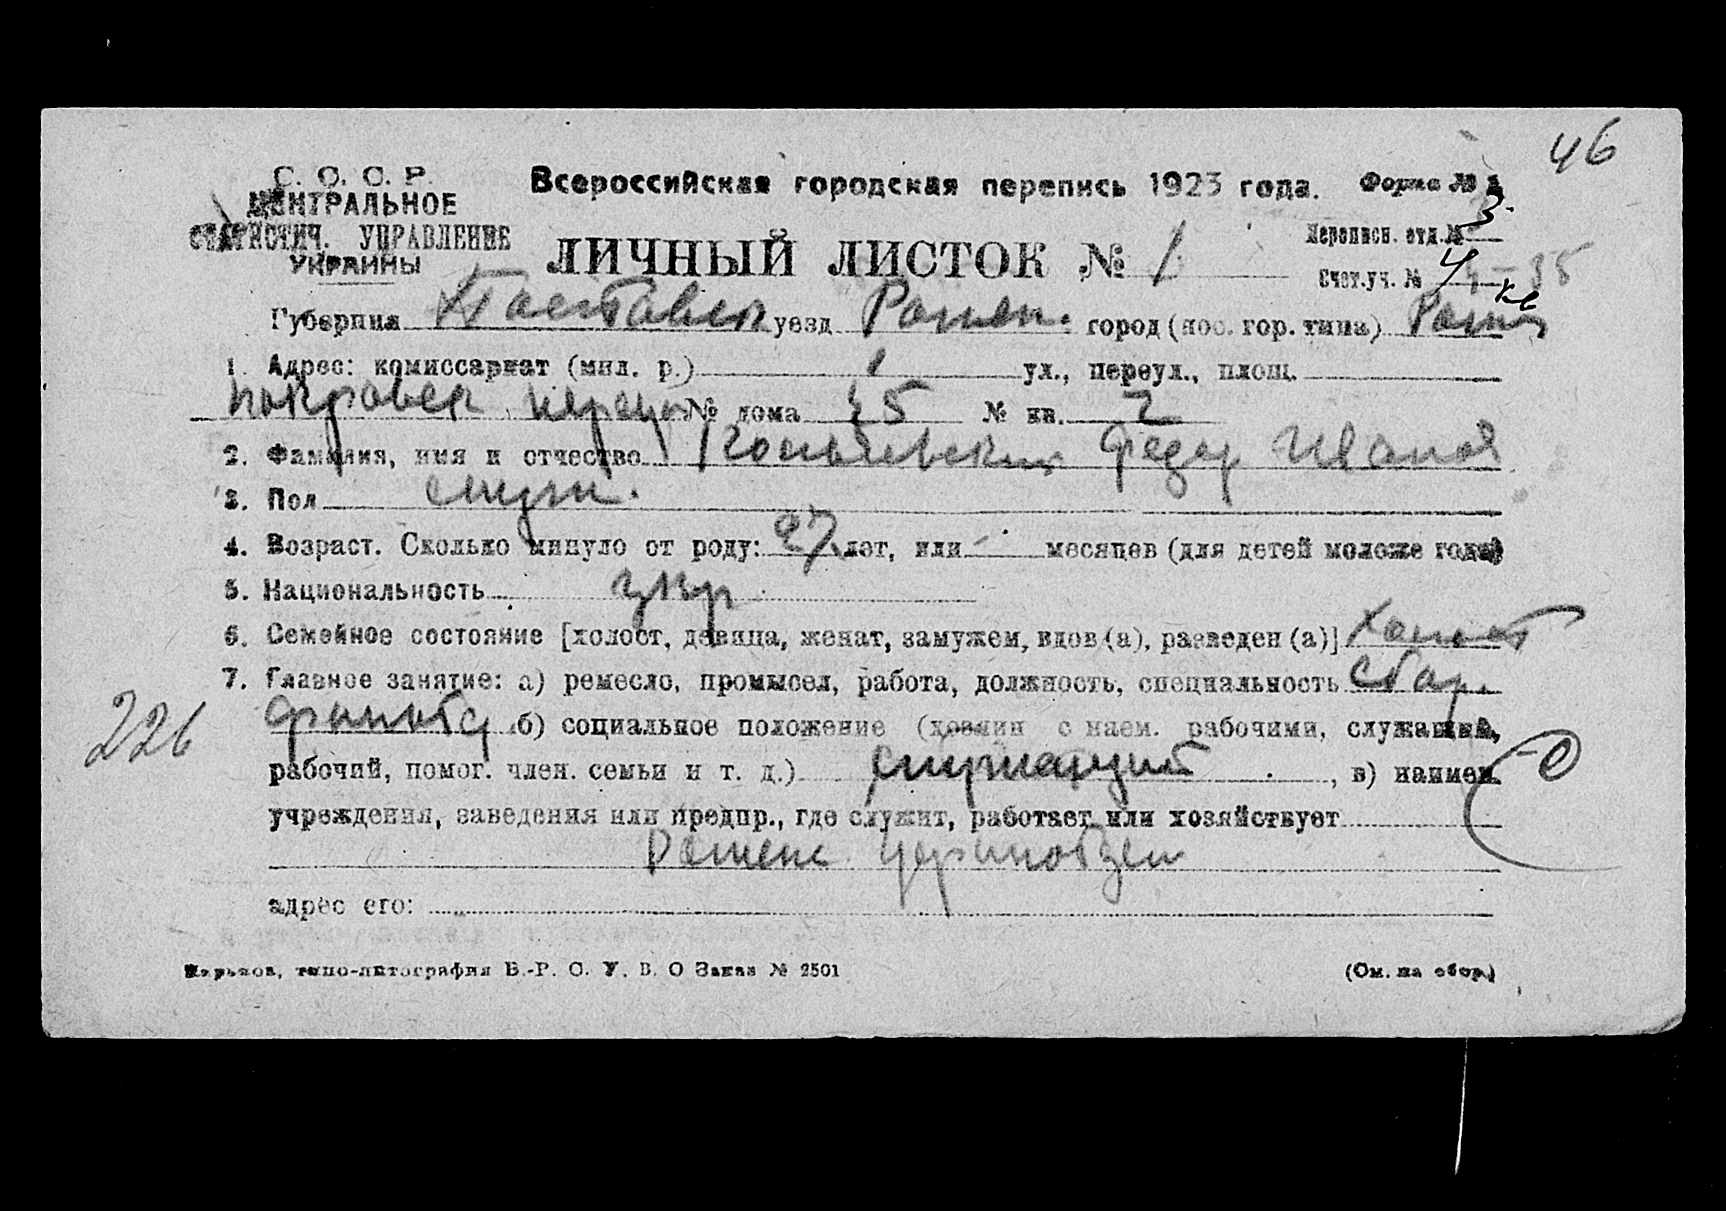 46
С. С. С. Р.
ЦЕНТРАЛЬНОЕ
СТАТИСТИЧ. УПРАВЛЕНИЕ
УКРАИНЫ
Всероссийская городская перепись 1923 года.
Форма № 1
Переписн. отд. № 3
ЛИЧНЫЙ ЛИСТОК № 1
Счет. уч. № 4
Губерния Полтавск уезд Ромен. город (пос. гор. типа) Ромны
1. Адрес: комиссариат (мил. р.) 1 ул., переул., площ.
покровск переул № дома 45 № кв. 2
2. Фамилия, имя и отчество Федор Иванов
3. Пол муж.
4. Возраст. Сколько минуло от роду: 27 лет, или - месяцев (для детей моложе года)
5. Национальность укр
6. Семейное состояние [холост, девица, женат, замужем, вдов (а), разведен (а)] Холост
7. Главное занятие: а) ремесло, промысел, работа, должность, специальность
226
б) социальное положение (хозяин с наем. рабочими, служащий,
рабочий, помог. член. семьи и т. д.) служащий, в) наимен.
учреждения, заведения или предпр., где служит, работает или хозяйствует
Роменс
адрес его:
Харьков, типо-литография В.-Р. С. У. В. О Заказ № 2501
(См. на обор.)